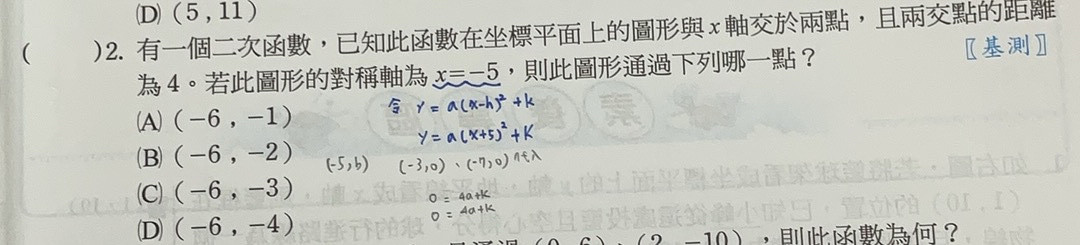 (D)(5,11)
( )2. 有一個二次函數,已知此函數在坐標平面上的圖形與 x 軸交於兩點,且兩交點的距離
為 4。若此圖形的對稱軸為 x=-5,則此圖形通過下列哪一點? 〖基測〗
令 Y = a(x-h)² + k
(A)(-6,-1)
Y = a(x+5)² + k
(B)(-6,-2) (-5,b) (-3,0)、(-7,0) 代入
(C)(-6,-3) 0 = 4a+k
0 = 4a+k
(D)(-6,-4)
,則此函數為何?